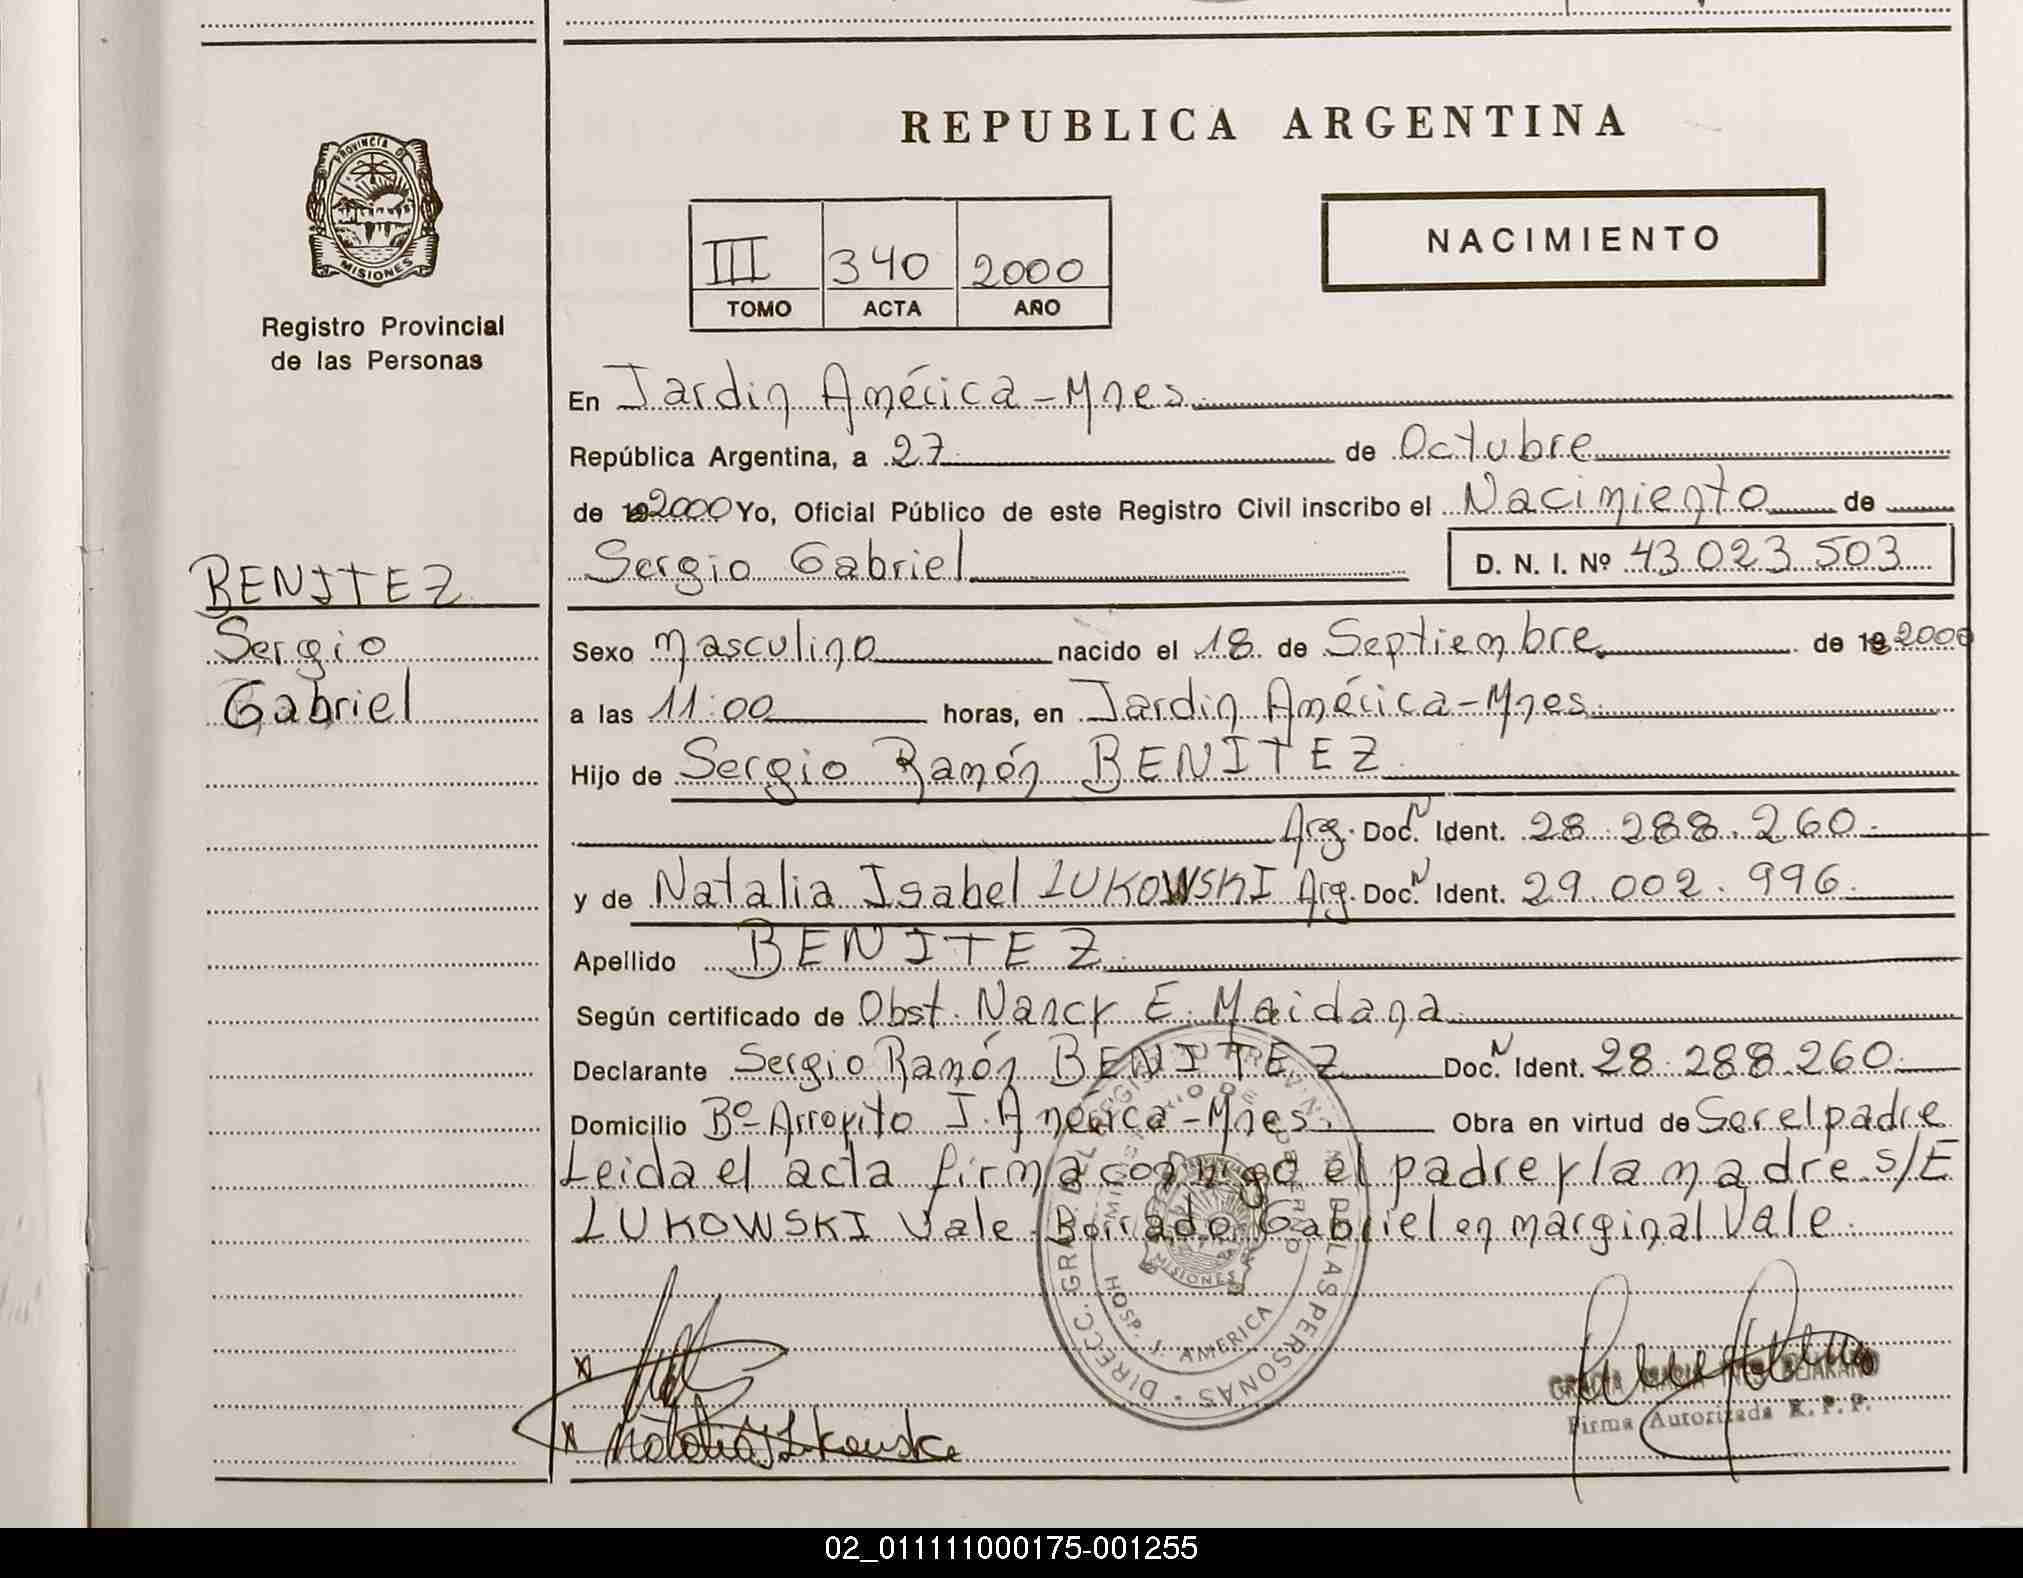 REPUBLICA ARGENTINA
PROVINCIA DE
MISIONES
Registro Provincial
de las Personas
III 340 2000
TOMO ACTA AÑO
NACIMIENTO
En Jardin América - Mnes
República Argentina, a 27 de Octubre
de 192000 Yo, Oficial Público de este Registro Civil inscribo el Nacimiento de
Sergio Gabriel D. N. I. Nº 43.023.503
BENITEZ
Sergio
Gabriel
Sexo Masculino nacido el 18 de Septiembre de 192000
a las 11:00 horas, en Jardin América - Mnes
Hijo de Sergio Ramón BENITEZ
Arg. Doc. N Ident. 28.288.260
y de Natalia Isabel LUKOWSKI Arg. Doc. N Ident. 29.002.996
Apellido BENITEZ
Según certificado de Obst. Nancy E. Maidana
Declarante Sergio Ramón BENITEZ Doc. N Ident. 28.288.260
Domicilio Bº Arroyito J. América - Mnes. Obra en virtud de Ser el padre
Leida el acta firma conmigo el padre y la madre S/E
LUKOWSKI Vale. Borrado Gabriel en marginal Vale.
DIRECC. GRAL. DEL REGISTRO PROVINCIAL DE LAS PERSONAS
MINISTERIO DE GOBIERNO
MISIONES
HOSP. J. AMERICA
Natalia Lukowski
GRACIA MARIA INES BEJARANO
Firma Autorizada R. P. P.
02_011111000175-001255